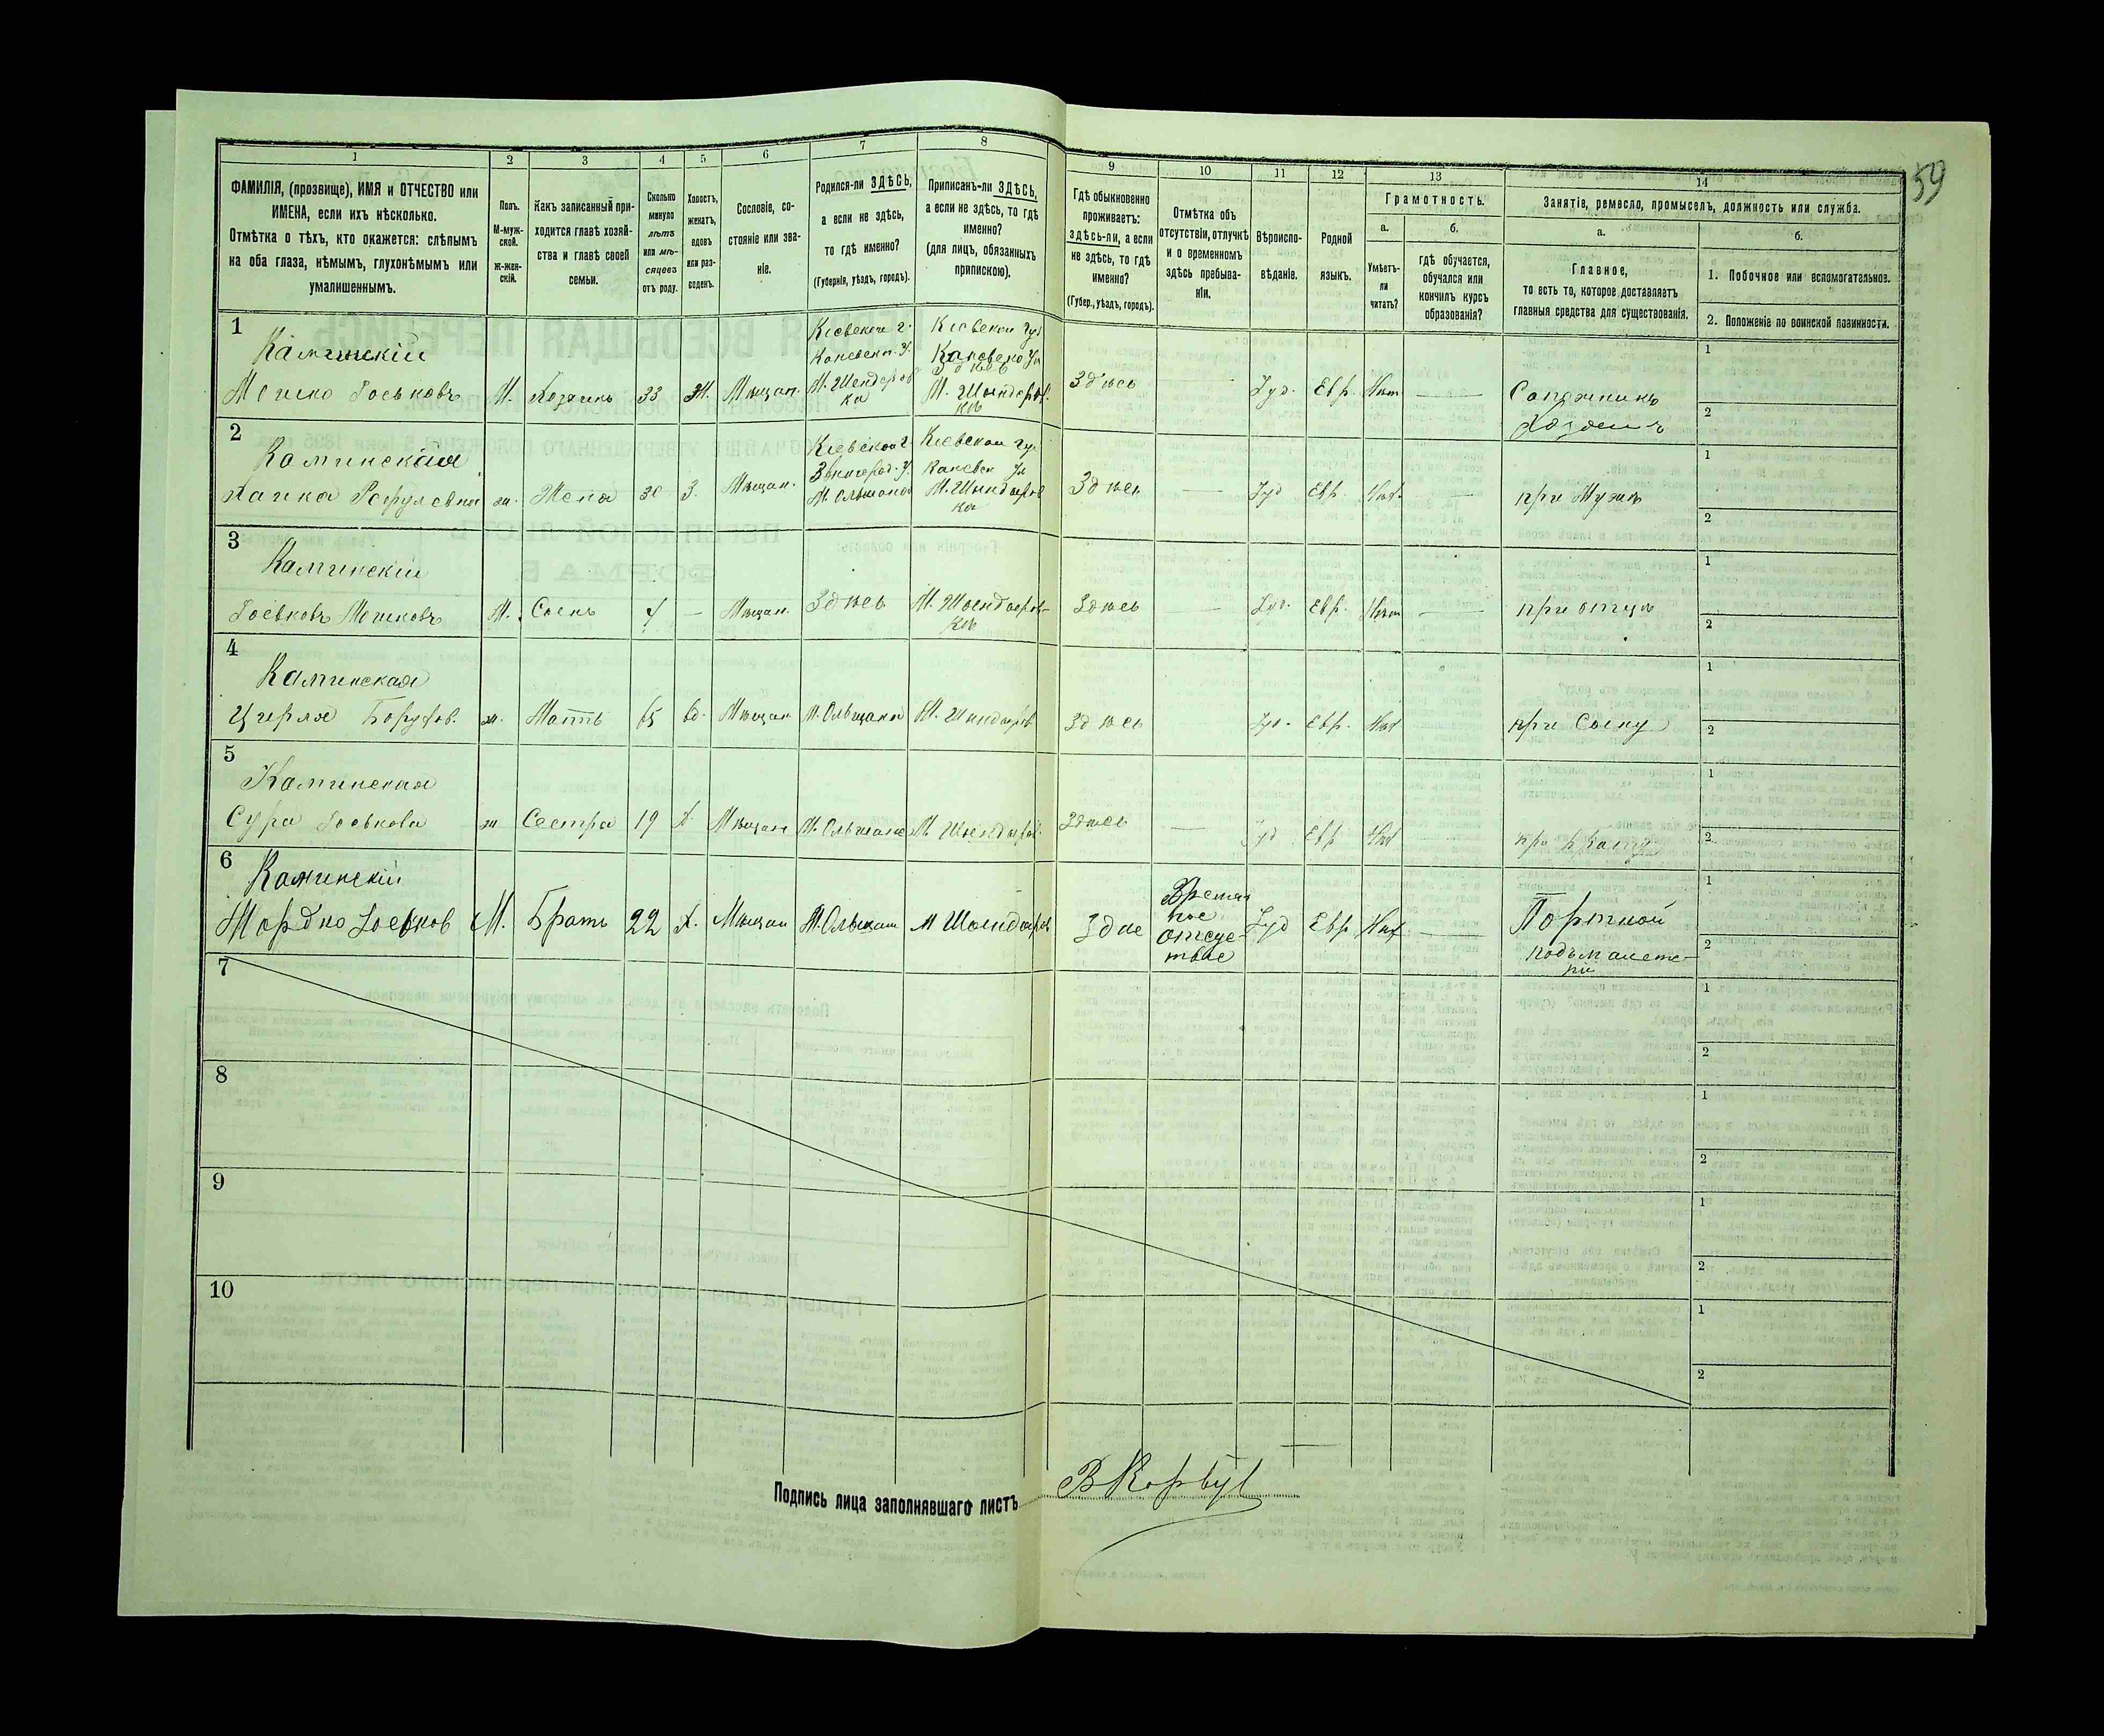 59
1 2 3 4 5 6 7 8 9 10 11 12 13 14
ФАМИЛІЯ, (прозвище), ИМЯ и ОТЧЕСТВО или
ИМЕНА, если ихъ нѣсколько.
Отмѣтка о тѣхъ, кто окажется: слѣпымъ
на оба глаза, нѣмымъ, глухонѣмымъ или
умалишеннымъ.
Полъ.
М-муж-
ской.
ж-жен-
скій.
Какъ записанный при-
ходится главѣ хозяй-
ства и главѣ своей
семьи.
Сколько
минуло
лѣтъ
или мѣ-
сяцевъ
отъ роду.
Холостъ,
женатъ,
вдовъ
или раз-
веденъ.
Сословіе, со-
стояніе или зва-
ніе.
Родился-ли ЗДѢСЬ,
а если не здѣсь,
то гдѣ именно?
(Губернія, уѣздъ, городъ).
Приписанъ-ли ЗДѢСЬ,
а если не здѣсь, то гдѣ
именно?
(для лицъ, обязанныхъ
припискою).
Гдѣ обыкновенно
проживаетъ:
здѣсь-ли, а если
не здѣсь, то гдѣ
именно?
(Губер., уѣздъ, городъ).
Отмѣтка объ
отсутствіи, отлучкѣ
и о временномъ
здѣсь пребыва-
ніи.
Вѣроиспо-
вѣданіе.
Родной
языкъ.
Грамотность.
а.
Умѣетъ-
ли
читать?
б.
гдѣ обучается,
обучался или
кончилъ курсъ
образованія?
Занятіе, ремесло, промыселъ, должность или служба.
а.
Главное,
то есть то, которое доставляетъ
главныя средства для существованія.
б.
1. Побочное или вспомогательное.
2. Положеніе по воинской повинности.
1
Каминскій
Мошко Іоськовъ
М.
Хозяинъ
33
Ж.
Мѣщан.
Кіевской г.
Каневск. у.
М. Шендеров
ка
Кіевской губ
Каневско уѣ
Здѣсь
М. Шендеров.
кѣ
Здѣсь
Іуд.
Евр.
Нѣт
Сапожникъ
Хозяинъ
1
2
2
Каминская
Ханка Рефулевна
ж.
Жена
30
З.
Мѣщан.
Кіевской г.
Звенигород. у.
М. Ольшана
Кіевской губ
Каневск уѣ
М. Шендеров
ка
Здѣсь
Іуд
Евр.
Нѣт.
при Мужѣ
1
2
3
Каминскій
Іоськовъ Мошковъ
М.
Сынъ
4
Мѣщан.
Здѣсь
М. Шендеров-
кѣ
Здѣсь
Іуд.
Евр.
Нѣт
при отцѣ
1
2
4
Каминская
Цирля Борухов.
ж.
Мать
65
вд.
Мѣщан
М. Ольшана
М. Шендеров
Здѣсь
Іуд.
Евр.
Нѣт
при Сыну
1
2
5
Каминская
Сура Іоськова
ж
Сестра
19
Х.
Мѣщан
М. Ольшана
М. Шендеров.
Здѣсь
Іуд
Евр
Нѣт
при брату
1
2
6
Каминскій
Мордко Іоськов
М.
Братъ
22
Х.
Мѣщан
М. Ольшан
М Шендеров
Здѣс
Времен
ное
отсус-
твіе
Іуд
Евр
Нѣт
Портной
подъмастє-
рій
1
2
7
1
2
8
1
2
9
1
2
10
1
2
Подпись лица заполнявшаго листъ